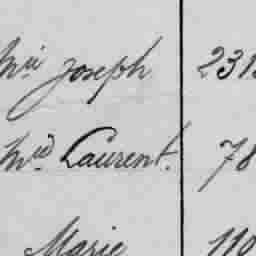 Joseph 231
Laurent. 78
Marie 110